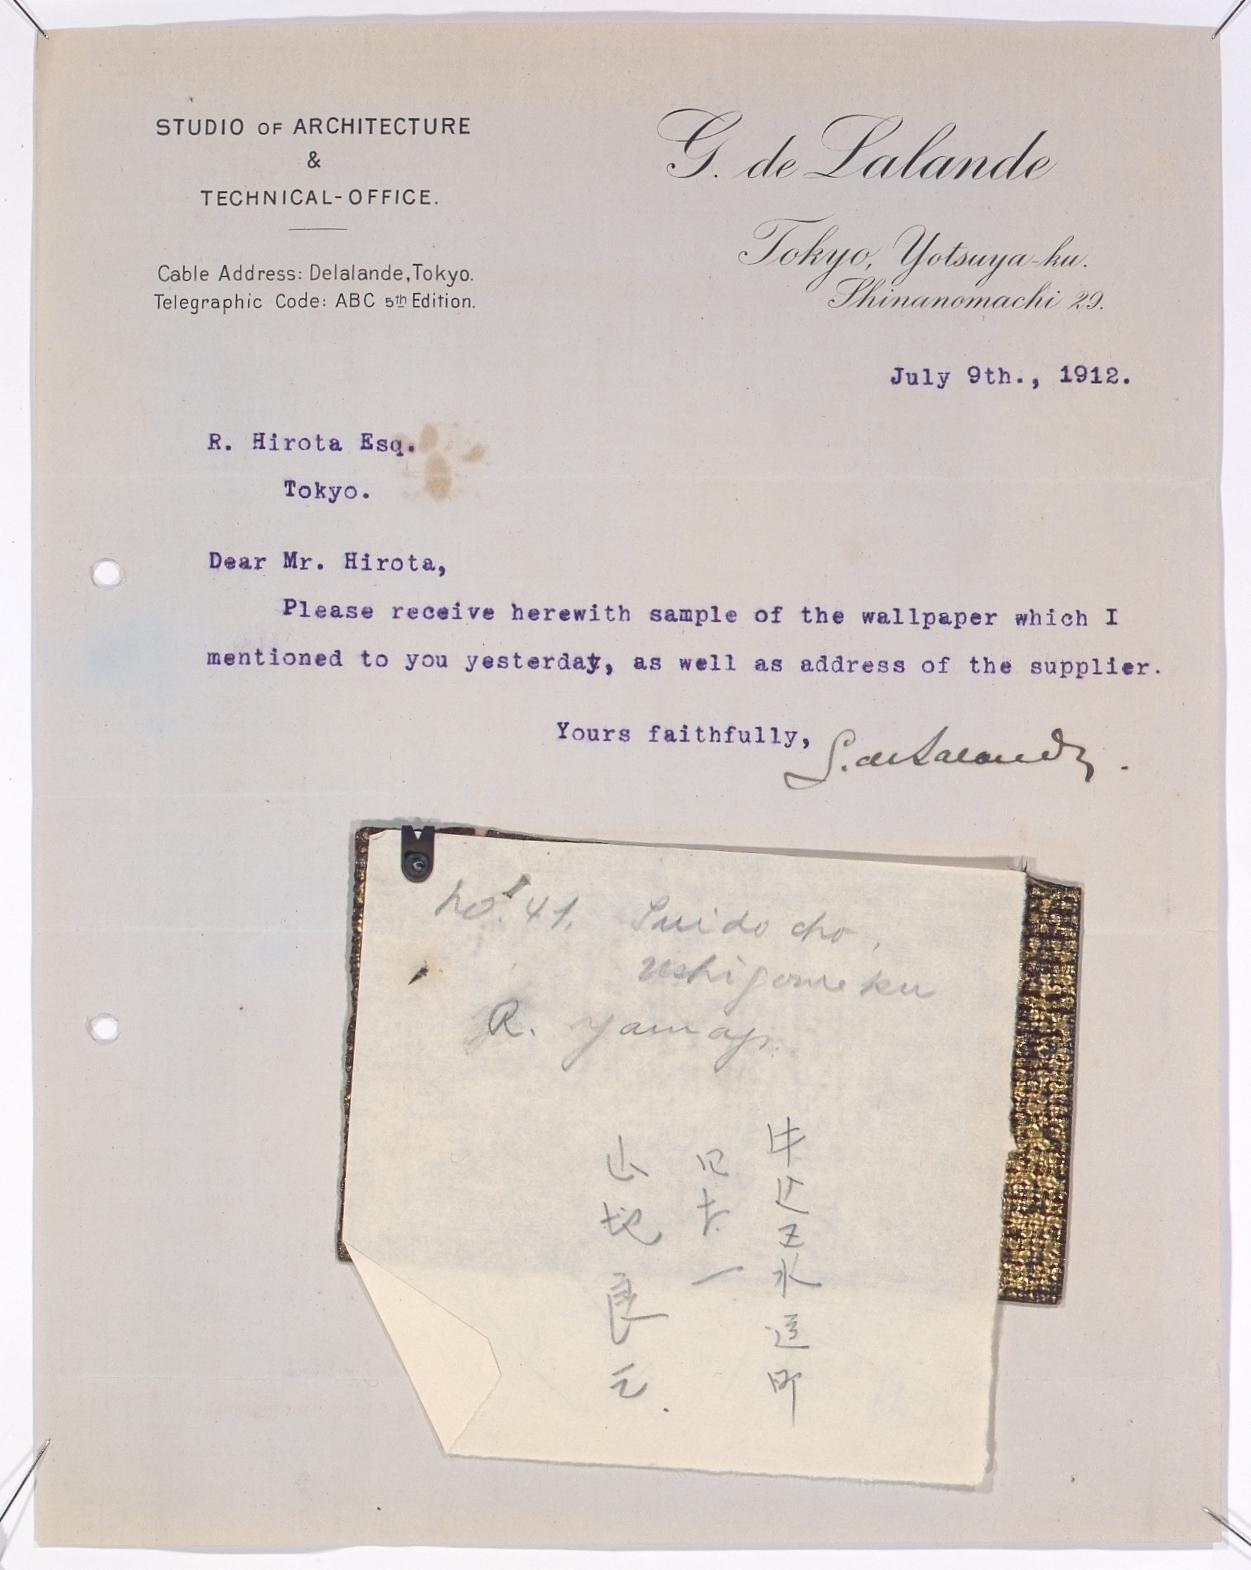 STUDIO OF ARCHITECTURE
&
TECHNICAL-OFFICE.
Cable Address: Delalande, Tokyo.
Telegraphic Code: ABC 5th Edition.
G. de Lalande
Tokyo, Yotsuya-ku.
Shinanomachi 29.
July 9th., 1912.
R. Hirota Esq.
Tokyo.
Dear Mr. Hirota,
Please receive herewith sample of the wallpaper which I
mentioned to you yesterday, as well as address of the supplier.
Yours faithfully,
G. de Lalande.
No. 41. Suido cho,
Ushigome ku
R. Yamaji
牛込区水道町
四十一
山地良